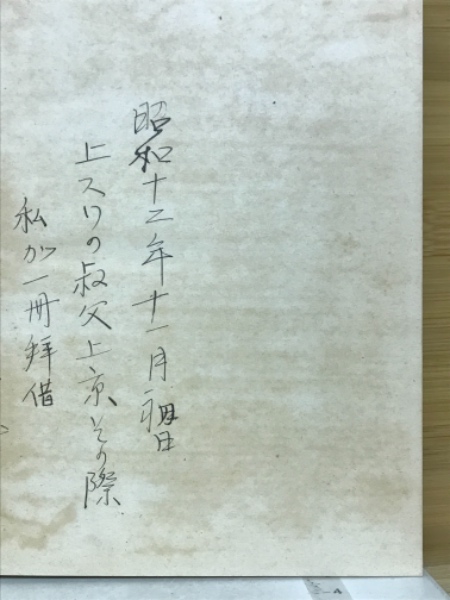 昭和十二年十一月
上スリの叔父上京、その際
私が一冊拝借